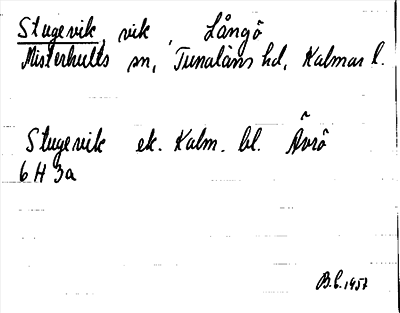 Stugevik, vik, Långö
Misterhults sn, Tunaläns hd, Kalmar l.
Stugevik ek. Kalm. bl. Ävrö
6 H 3a
B.l. 1957